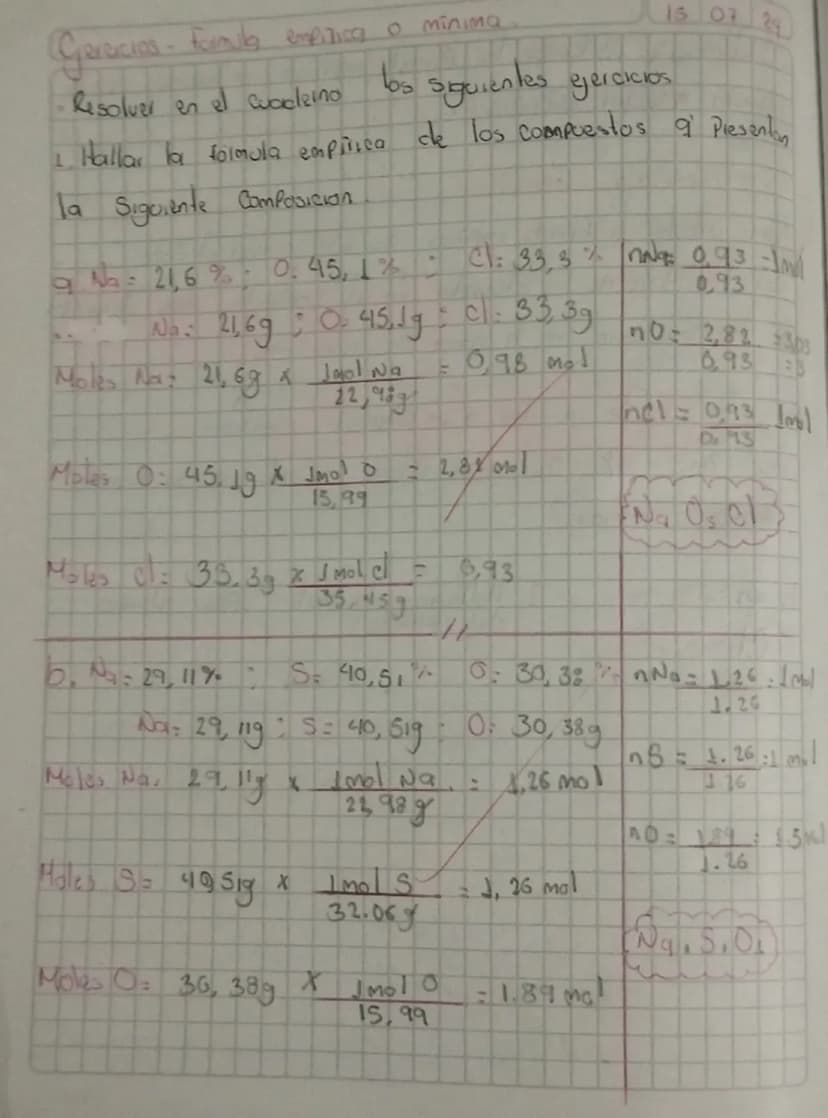 Ejercicios - Formula empirica o minima.
15 07 24
Resolver en el cuaderno los siguientes ejercicios
1. Hallar la formula empirica de los compuestos q' Presentan
la siguiente Composicion.
a Na = 21,6 % ; O. 45,1 % : Cl: 33,3 %
Na: 21,6g ; O. 45,1g : Cl: 33,3g
Moles Na: 21,6g x 1mol Na / 22,98g = 0,98 mol
Moles O: 45,1g x 1mol O / 15,99 = 2,82 mol
Moles Cl: 33,3g x 1mol cl / 35,45g = 0,93
nNa = 0,93 / 0,93 = 1mol
nO = 2,82 / 0,93 = 3
nCl = 0,93 / 0,93 1mol
Na O3 Cl
b. Na = 29,11% : S = 40,51 % O: 30,38 %
Na = 29,11g : S = 40,51g : O: 30,38g
Moles Na. 29,11g x 1mol Na / 22,98g = 1,26 mol
Moles S = 40,51g x 1mol S / 32.06g = 1,26 mol
Moles O = 30,38g x 1mol O / 15,99 = 1.89 mol
nNa = 1,26 / 1.26 : 1mol
nS = 1.26 / 1.26 : 1 mol
nO = 1,89 / 1.26 : 1.5mol